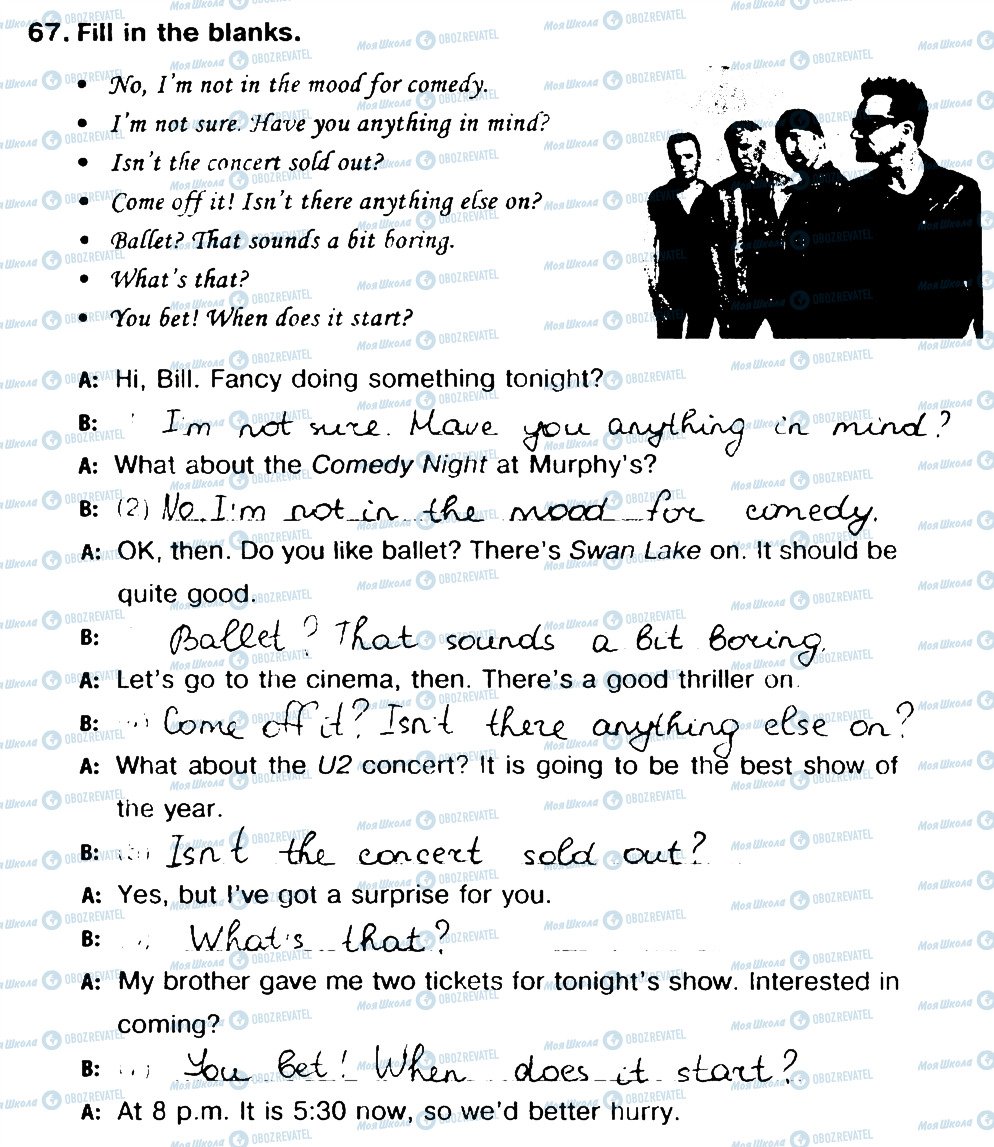 67. Fill in the blanks.
• No, I'm not in the mood for comedy.
• I'm not sure. Have you anything in mind?
• Isn't the concert sold out?
• Come off it! Isn't there anything else on?
• Ballet? That sounds a bit boring.
• What's that?
• You bet! When does it start?
A: Hi, Bill. Fancy doing something tonight?
B: I'm not sure. Have you anything in mind?
A: What about the Comedy Night at Murphy's?
B: (2) No I'm not in the mood for comedy.
A: OK, then. Do you like ballet? There's Swan Lake on. It should be
quite good.
B: Ballet? That sounds a bit boring.
A: Let's go to the cinema, then. There's a good thriller on.
B: Come off it? Isn't there anything else on?
A: What about the U2 concert? It is going to be the best show of
the year.
B: Isn't the concert sold out?
A: Yes, but I've got a surprise for you.
B: What's that?
A: My brother gave me two tickets for tonight's show. Interested in
coming?
B: You bet! When does it start?
A: At 8 p.m. It is 5:30 now, so we'd better hurry.